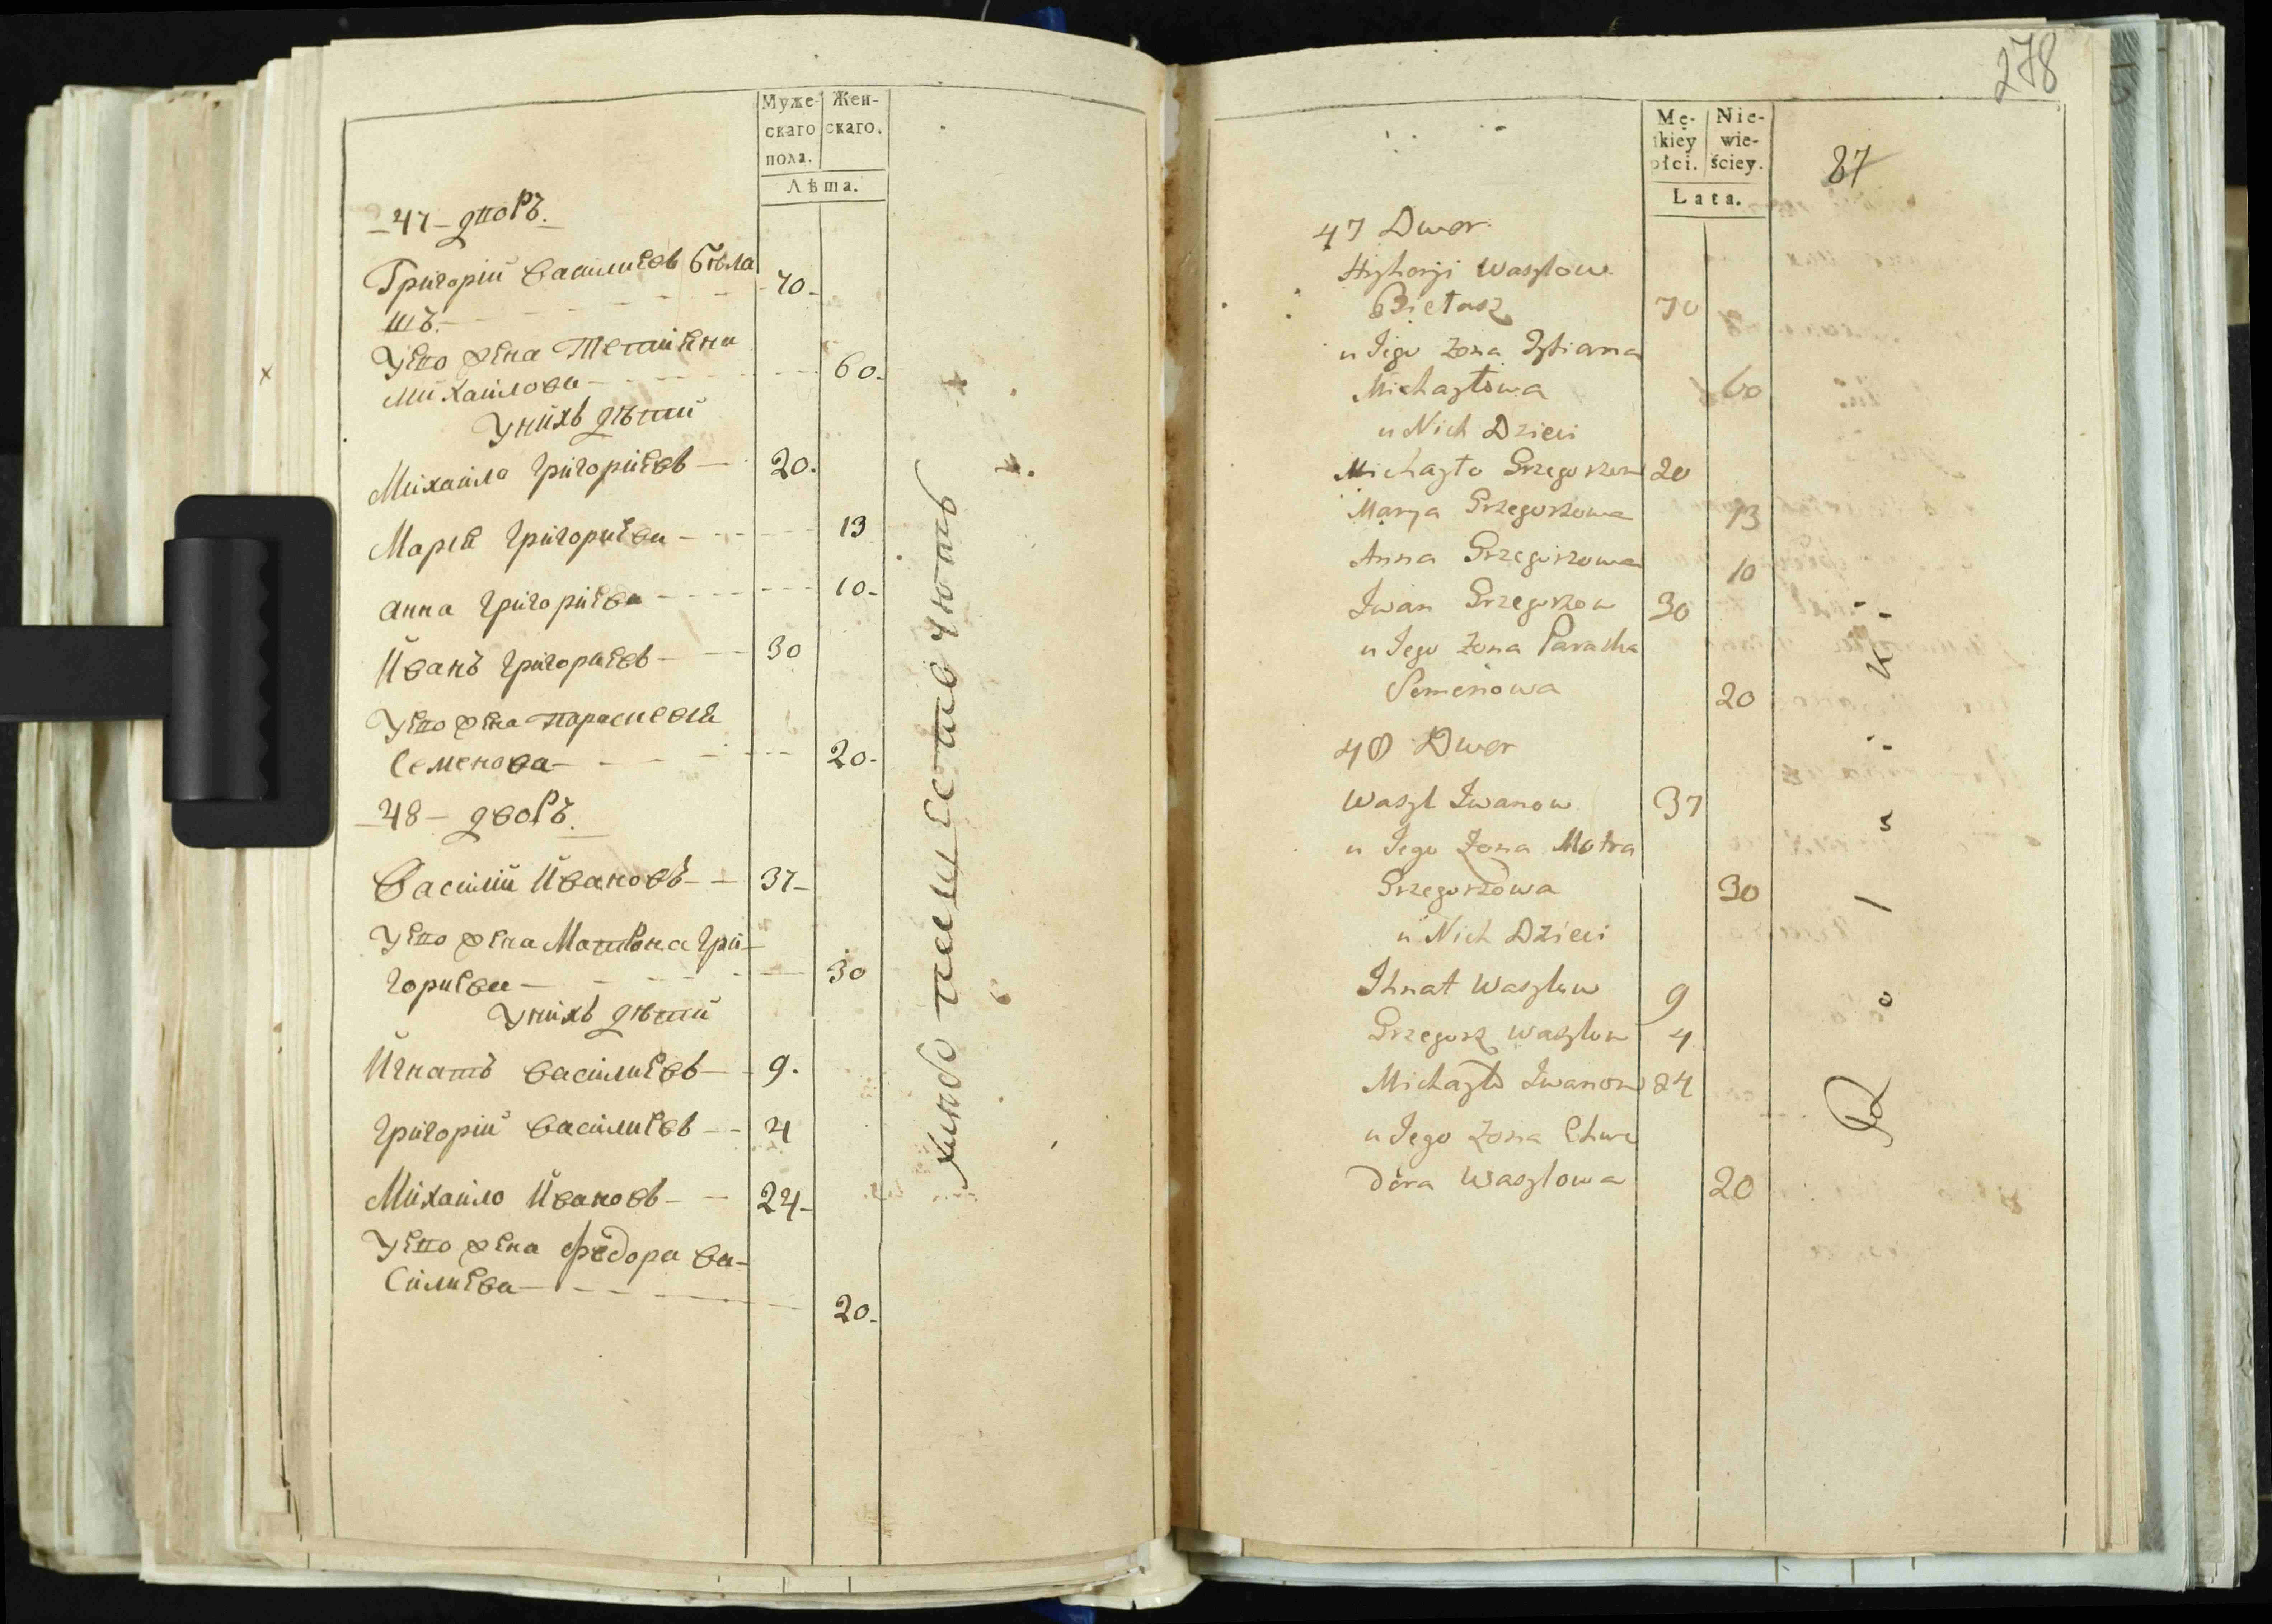 Муже-
скаго
пола.
Жен-
скаго.
Лѣта.
47 - дворъ.
Григорій Василиевъ Бѣла 70
шъ.
У ево жена Тетиiена
Михайлова 60.
У нихъ дѣти
Михайло Григориевъ 20.
Марiя Григориева 13
Анна Григориева 10
Иванъ Григориевъ 30
У ево жена Параскевiя
Семенова 20
48 - дворъ.
Василий Ивановъ 37
У ево жена Матрона Гри-
гориева 30
У нихъ дѣти
Игнатъ Василиевъ 9.
Григорiй Василиевъ 4
Михайло Ивановъ 24
У ево жена Федора Ва-
силиева 20
278
Mę-
skiey
płci.
Nie-
wie-
ściey.
Lata.
87
47 Dwor
Hryhoryi Wasylow
Biełasz 70
u Jego Zona Tytianna
Michayłowa 60
u Nich Dzieci
Michayło Grzegorzow 20
Marya Grzegorzowa 13
Anna Grzegorzowa 10
Iwan Grzegorzow 30
u Jego Zona Paraska
Semenowa 20
48 Dwor
Wasyl Iwanow 37
u Jego Zona Motra
Grzegorzowa 30
u Nich Dzieci
Ihnat Wasylow 9
Grzegorz Wasylow 4
Michayło Iwanow 24
u Jego Zona Chwe
dora Wasylowa 20